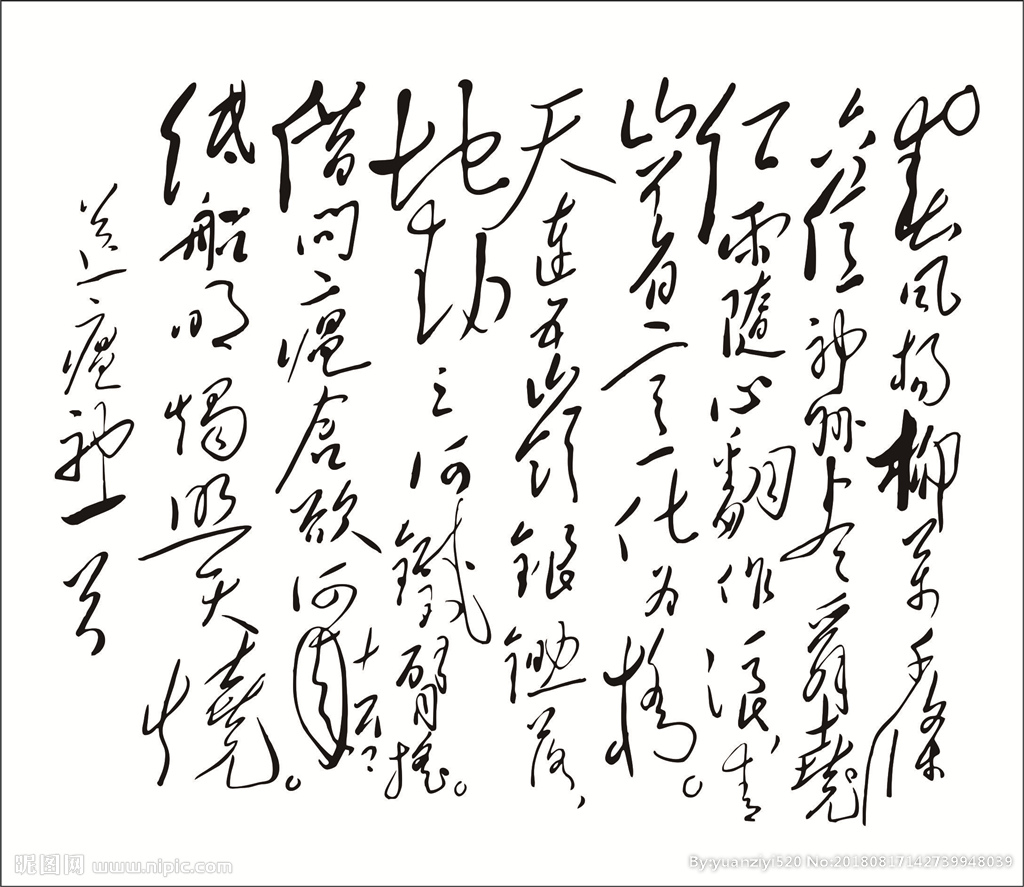 春風楊柳萬千條
六億神州盡舜堯
红雨隨心翻作浪,青
山着意化为橋。
天連五嶺銀鋤落,
地動三河鐵臂摇。
借問瘟君欲何
纸船明燭照天燒。
送瘟神一首
昵图网 www.nipic.com
By:yuanziyi520 No:20180817142739948039